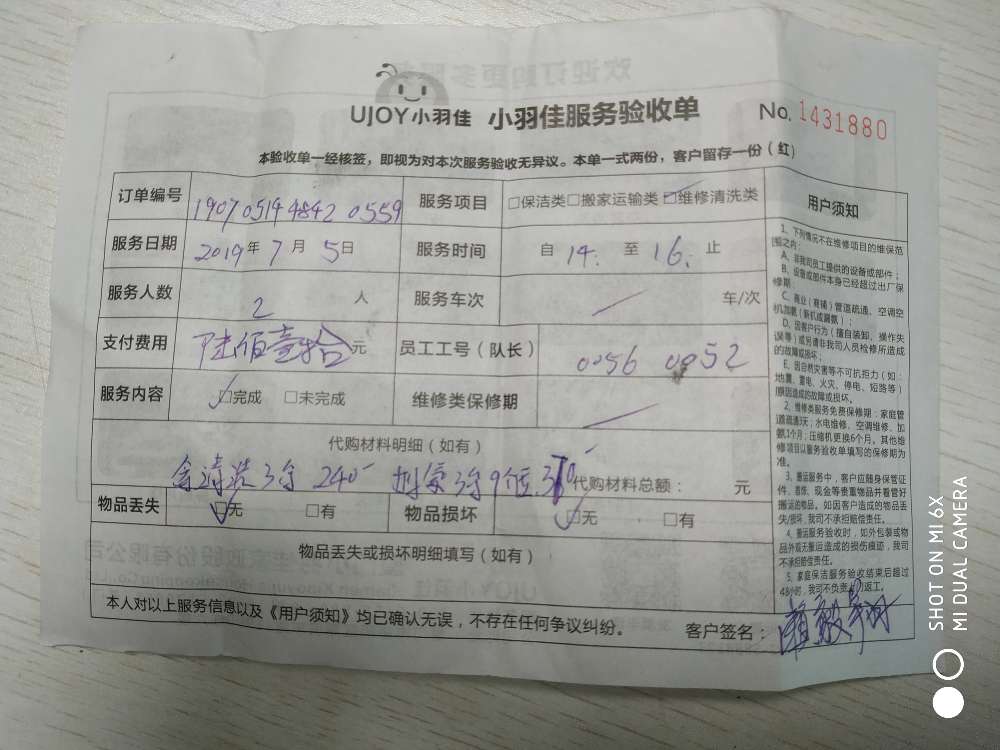 UJOY小羽佳 小羽佳服务验收单 No. 1431880
本验收单一经核签，即视为对本次服务验收无异议。本单一式两份，客户留存一份（红）
订单编号 190705144842 0559 服务项目 □保洁类□搬家运输类☑维修清洗类
服务日期 2019年7月5日 服务时间 自14.至16.止
服务人数 2人 服务车次 / 车/次
支付费用 陆佰壹拾元 员工工号（队长） 0056 0052
服务内容 ☑完成 □未完成 维修类保修期 /
代购材料明细（如有）
清洗3台 240 加氟3台9个压 370 代购材料总额： 元
物品丢失 ☑无 □有 物品损坏 ☑无 □有
物品丢失或损坏明细填写（如有）
本人对以上服务信息以及《用户须知》均已确认无误，不存在任何争议纠纷。 客户签名：
用户须知
1、下列情况不在维修项目的维保范
围之内：
A、非我司员工提供的设备或部件；
B、设备或部件本身已经超过出厂保
修期；
C、商业（商铺）管道疏通、空调空
机加氨（新机或漏氨）；
D、因客户行为（擅自装卸、操作失
误等）或另请非我司人员检修所造成
的故障或损坏；
E、因自然灾害等不可抗力（如：
地震、雷电、火灾、停电、短路等）
原因造成的故障或损坏。
2、维修类服务免费保修期：家庭管
道疏通3天；水电维修、空调维修、加
氨1个月；压缩机更换6个月。其他维
修项目以服务验收单填写的保修期为
准。
3、搬运服务中，客户应随身保管证
件、首饰、现金等贵重物品并看管好
搬运的物品。如因客户造成的物品丢
失/损坏，我司不承担赔偿责任。
4、搬运服务验收时，如外包装或物
品外观无搬运造成的损伤痕迹，我司
不承担赔偿责任。
5、家庭保洁服务验收结束后超过
48小时，我司不负责返工。
SHOT ON MI 6X
MI DUAL CAMERA